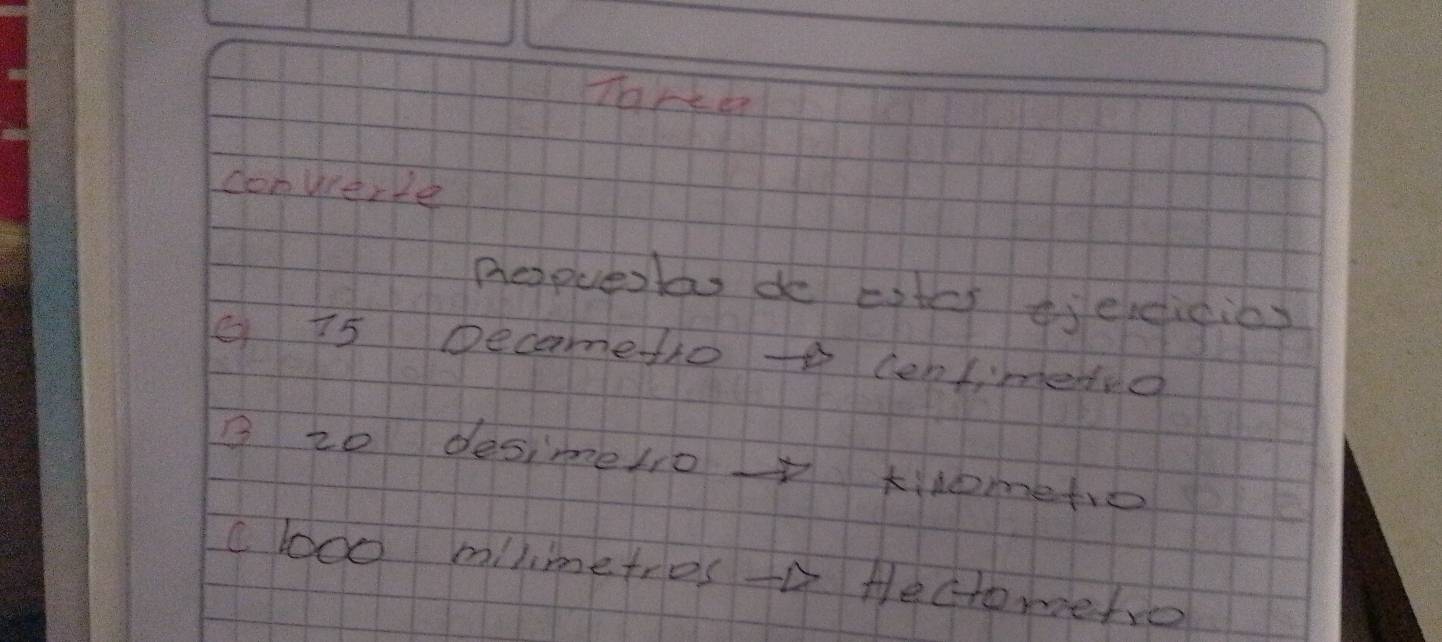 Tarea
convierte
Respuestas de estos ejercicios
a 15 Decametro → centimetro
B 20 desimetro → kilometro
C 1000 milimetros → Hectometro